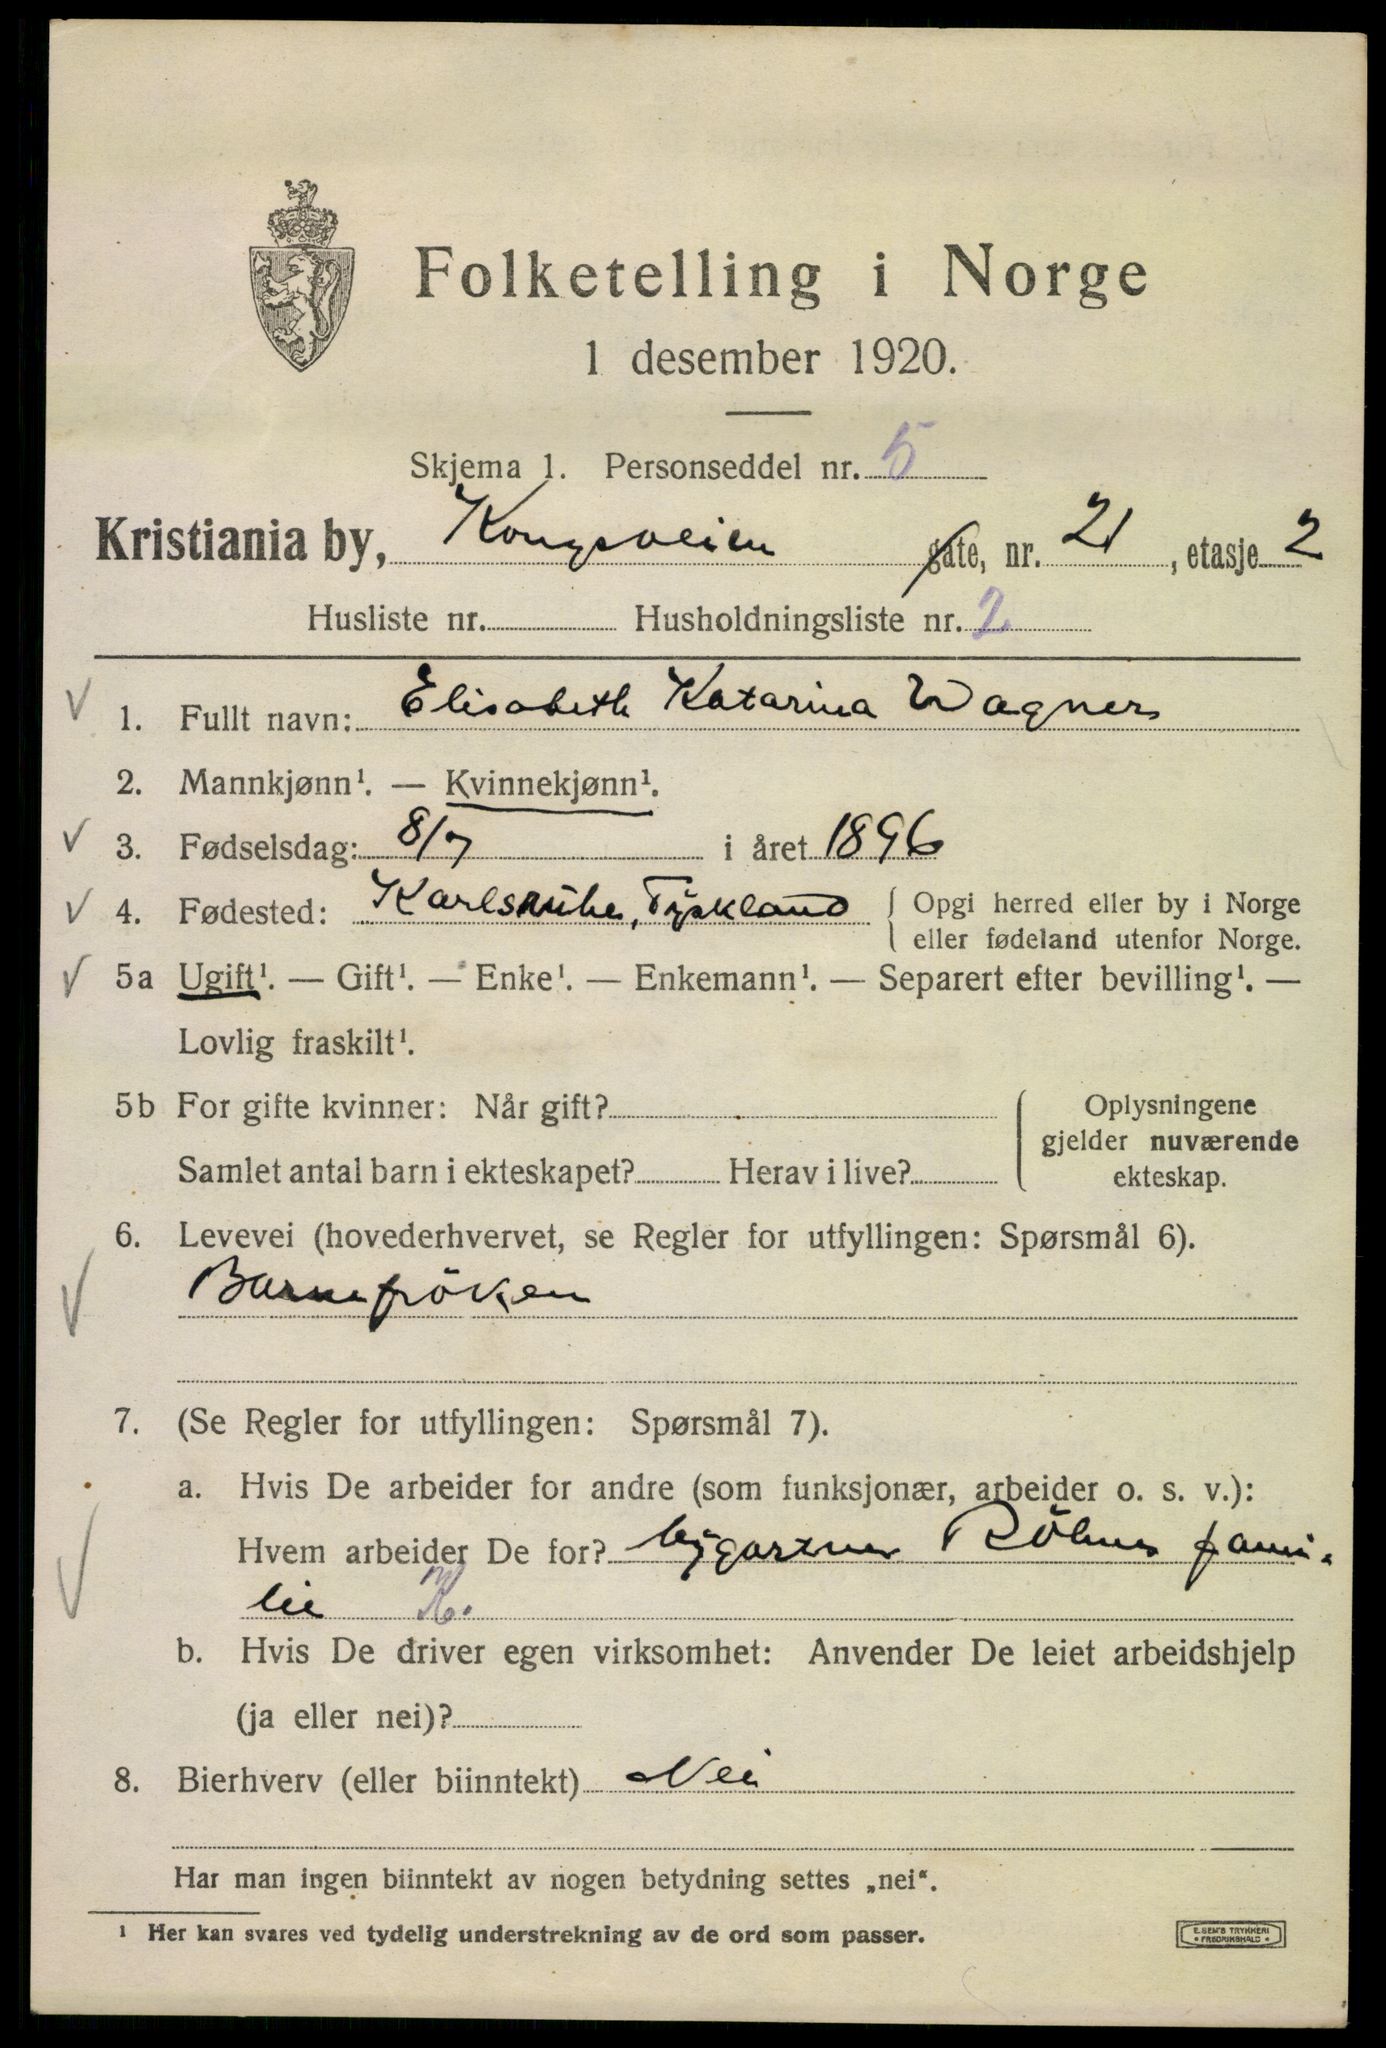 Folketelling i Norge
1 desember 1920.
Skjema 1. Personseddel nr. 5
Kristiania by, Kongsveien gate, nr. 21, etasje 2
Husliste nr. Husholdningsliste nr. 2
1. Fullt navn: Elisabeth Katarina Wagner
2. Mannkjønn¹. — Kvinnekjønn¹.
3. Fødselsdag: 8/7 i året 1896
4. Fødested: Karlsruhe, Tyskland { Opgi herred eller by i Norge
eller fødeland utenfor Norge.
5a Ugift¹. — Gift¹. — Enke¹. — Enkemann¹. — Separert efter bevilling¹. —
Lovlig fraskilt¹.
5b For gifte kvinner: Når gift? Oplysningene
gjelder nuværende
Samlet antal barn i ekteskapet? Herav i live? ekteskap.
6. Levevei (hovederhvervet, se Regler for utfyllingen: Spørsmål 6).
Barnefröken
7. (Se Regler for utfyllingen: Spørsmål 7).
a. Hvis De arbeider for andre (som funksjonær, arbeider o. s. v.):
Hvem arbeider De for? bygartner Röhne fami-
lie
b. Hvis De driver egen virksomhet: Anvender De leiet arbeidshjelp
(ja eller nei)?
8. Bierhverv (eller biinntekt) Nei
Har man ingen biinntekt av nogen betydning settes „nei“.
¹ Her kan svares ved tydelig understrekning av de ord som passer.
E. SEM'S TRYKKERI
FREDRIKSHALD